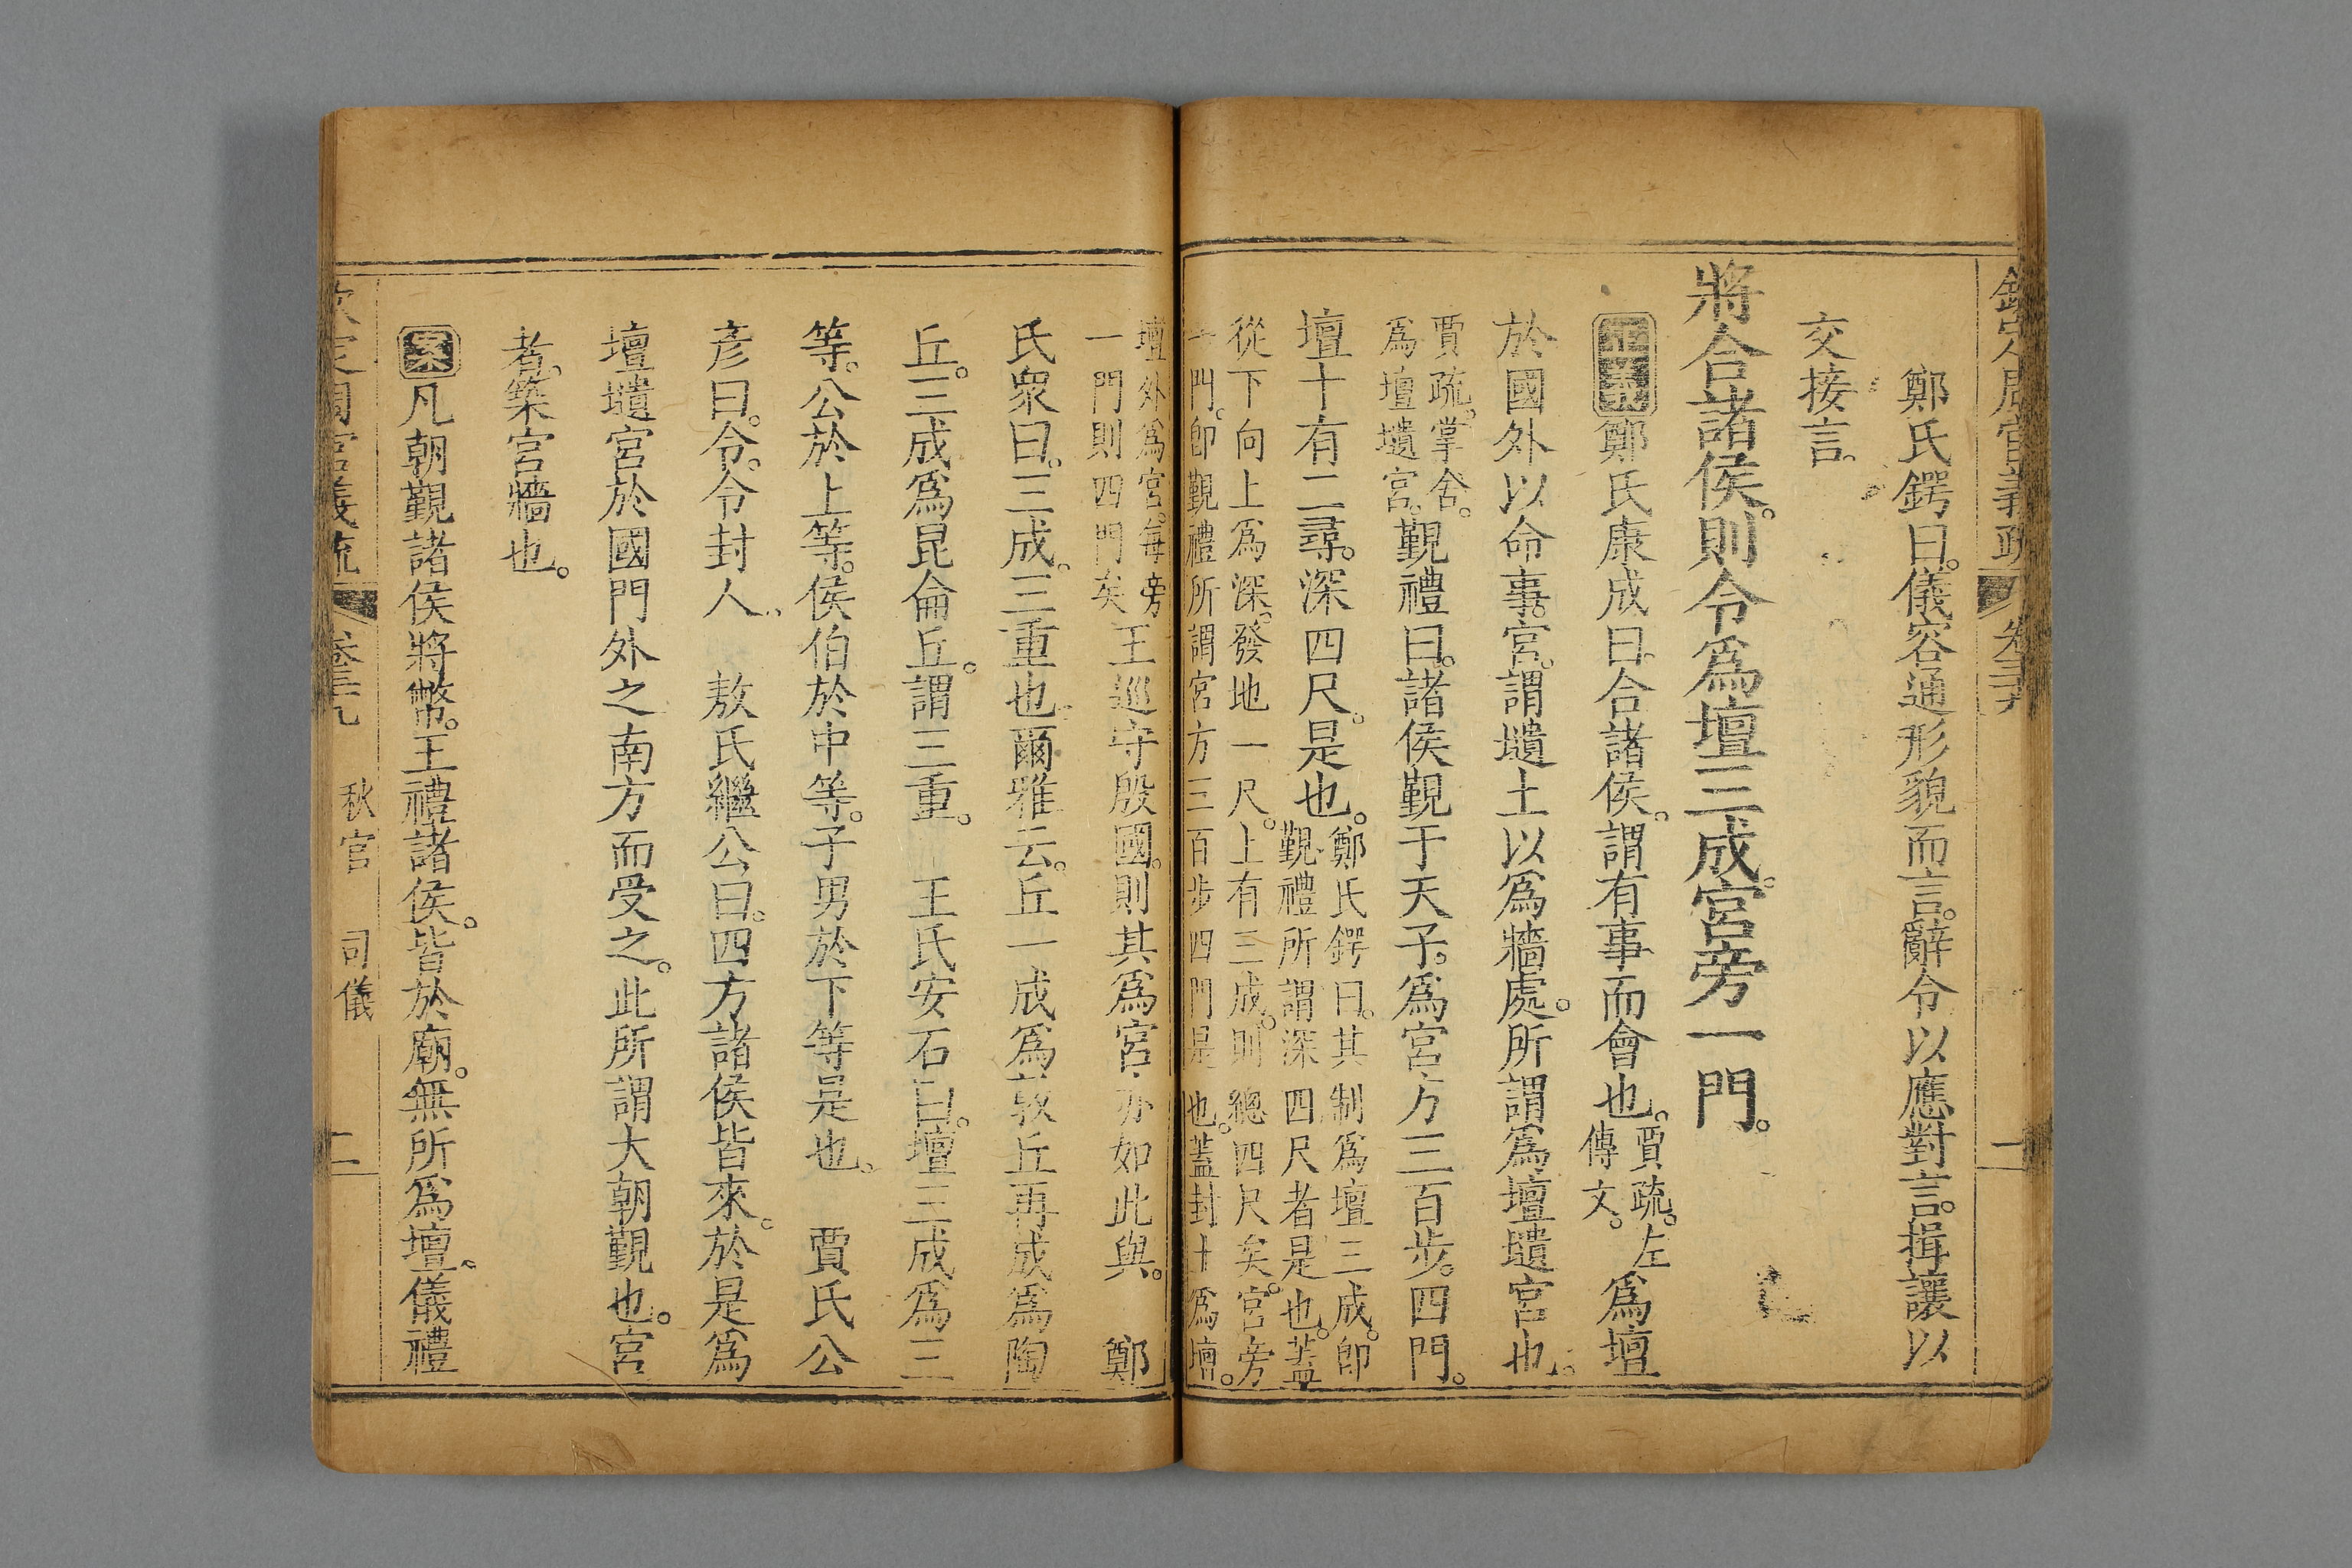 欽定周官義疏 卷三十九 一
鄭氏鍔曰。儀容通形貌而言。辭令以應對言。揖讓以
交接言。
將合諸侯。則令爲壇三成。宮旁一門。
正義鄭氏康成曰。合諸侯。謂有事而會也。賈疏。左傳文。爲壇
於國外以命事。宮。謂壝土以爲牆處。所謂爲壇壝宮也。
賈疏。掌舍。爲壇壝宮。覲禮曰。諸侯覲于天子。爲宮方三百步。四門。
壇十有二尋。深四尺。是也。鄭氏鍔曰。其制爲壇三成。卽覲禮所謂深四尺者是也。蓋
從下向上爲深。發地一尺。上有三成。則總四尺矣。宮旁
一門。卽覲禮所謂宮方三百步四門是也。蓋封土爲壇。
壇外爲宮。每旁一門則四門矣王巡守殷國。則其爲宮亦如此與。 鄭
氏眾曰。三成。三重也爾雅云。丘一成爲敦丘再成爲陶
丘。三成爲昆侖丘。謂三重。 王氏安石曰。壇三成爲三
等。公於上等。侯伯於中等。子男於下等是也。 賈氏公
彥曰。令。令封人。 敖氏繼公曰。四方諸侯皆來。於是爲
壇壝宮於國門外之南方而受之。此所謂大朝覲也。宮
者。築宮牆也。
案凡朝覲諸侯將幣。王禮諸侯。皆於廟。無所爲壇。儀禮
欽定周官義疏 卷三十九 秋官 司儀 二